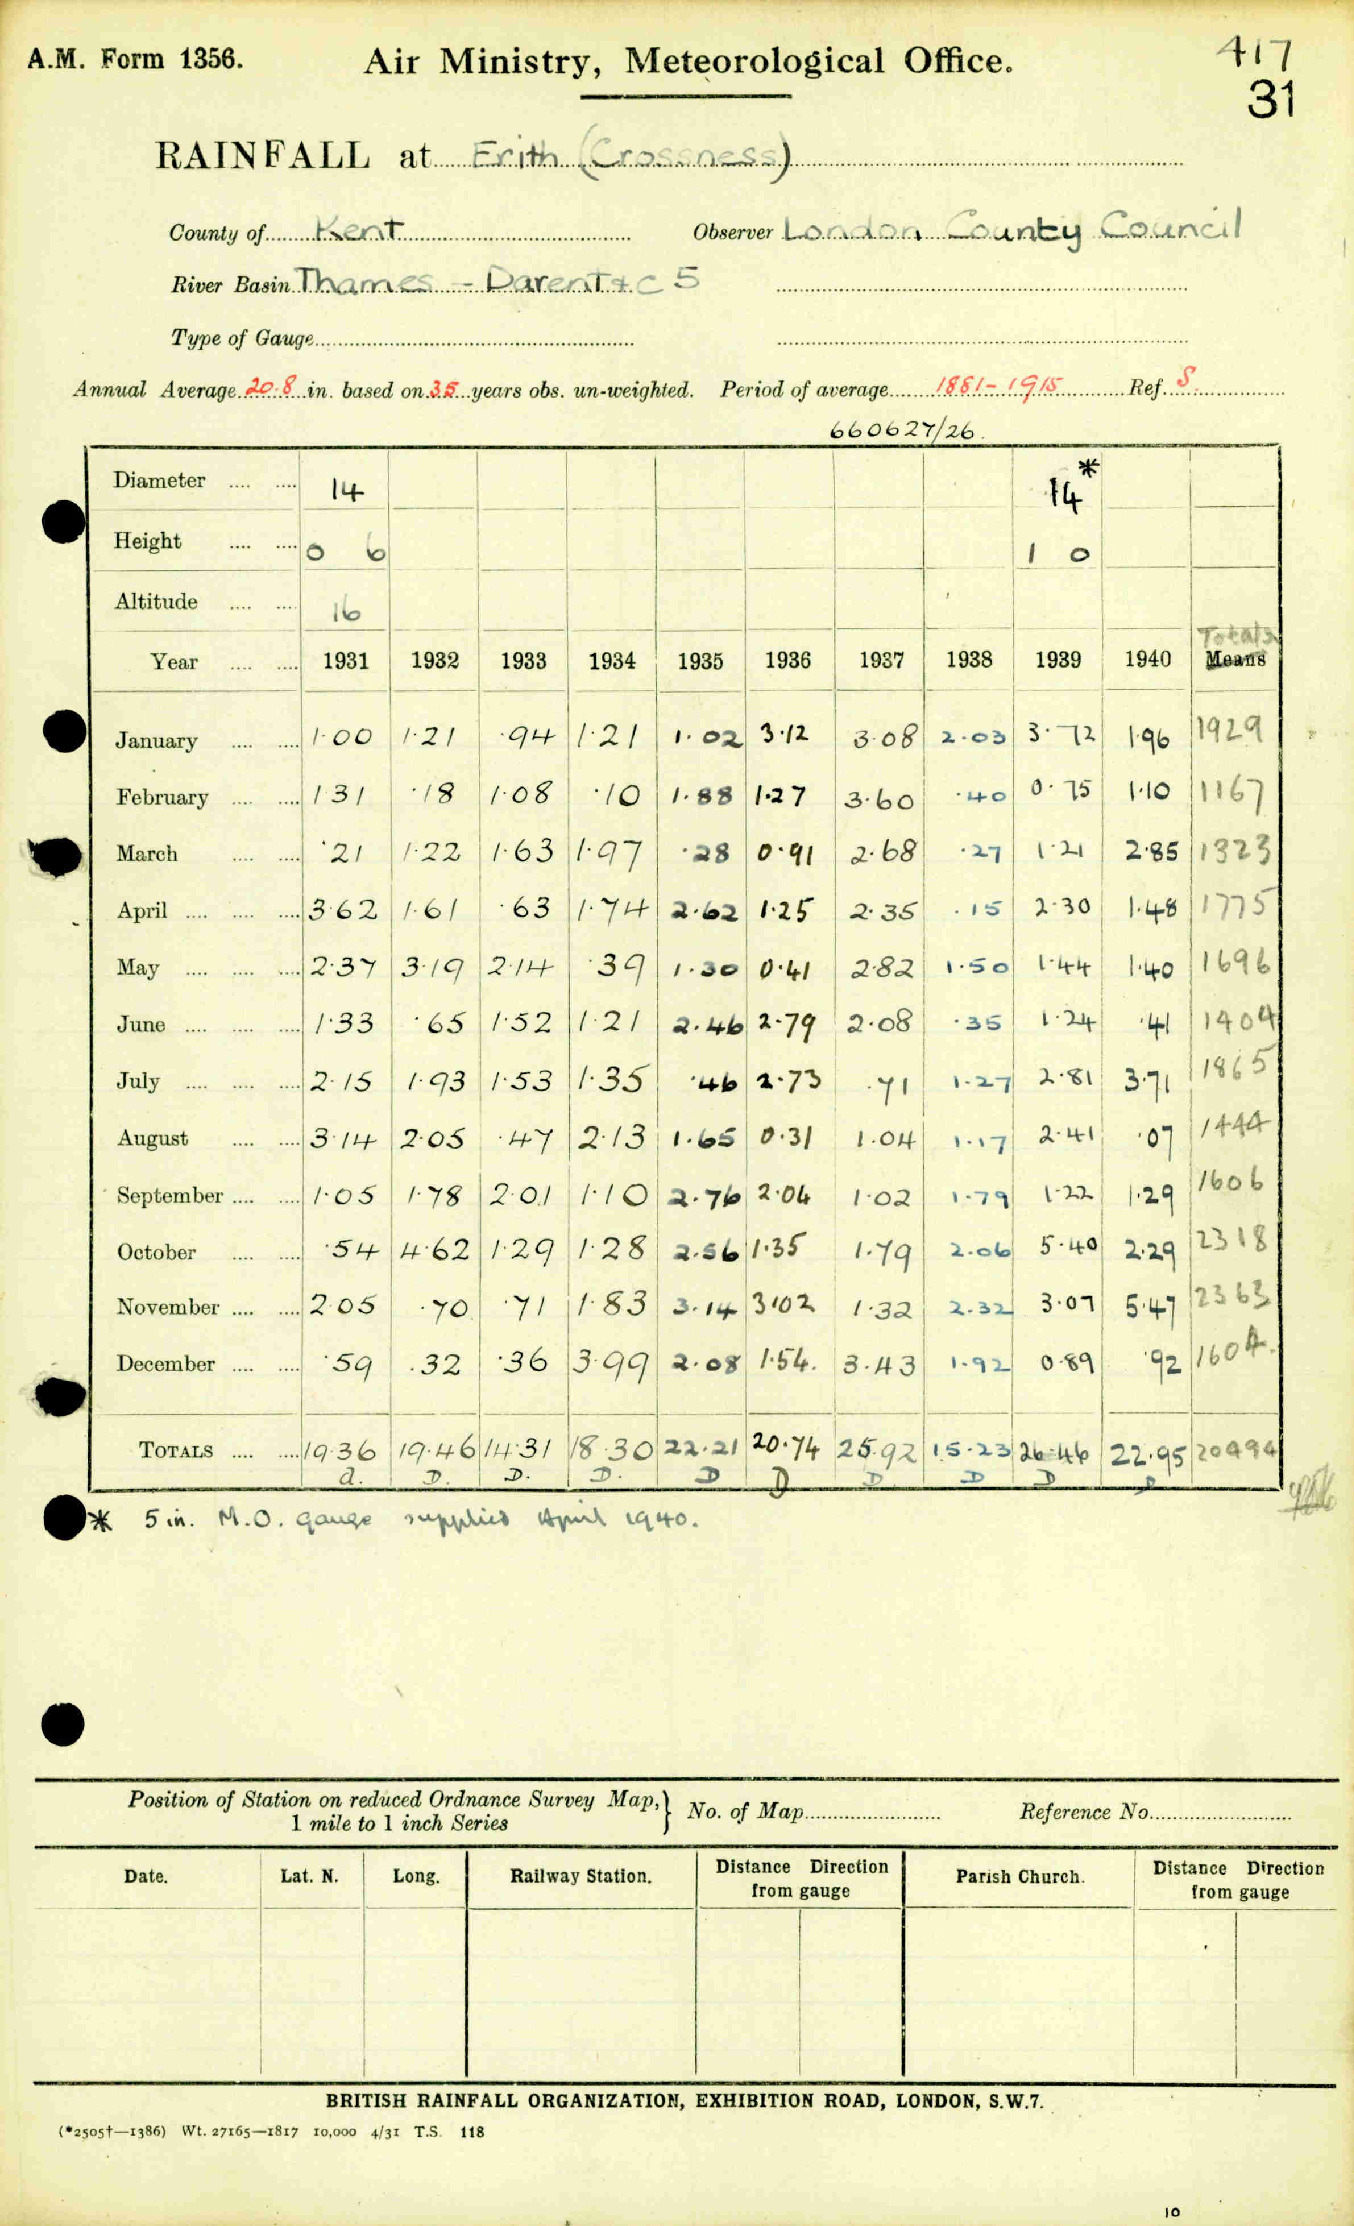 A.M. Form 1356. Air Ministry, Meteorological Office. 417
31
RAINFALL at Erith (Crossness)
County of Kent Observer London County Council
River Basin Thames - Darent & C 5
Type of Gauge
Annual Average 20.8 in. based on 35 years obs. un-weighted. Period of average 1881-1915 Ref. S.
660627/26.
Diameter 14 14*
Height 0 6 1 0
Altitude 16
Totals
Year 1931 1932 1933 1934 1935 1936 1937 1938 1939 1940 Means
January 1.00 1.21 .94 1.21 1.02 3.12 3.08 2.03 3.72 1.96 1929
February 1.31 .18 1.08 .10 1.88 1.27 3.60 .40 0.75 1.10 1167
March .21 1.22 1.63 1.97 .28 0.91 2.68 .27 1.21 2.85 1323
April 3.62 1.61 .63 1.74 2.62 1.25 2.35 .15 2.30 1.48 1775
May 2.37 3.19 2.14 .39 1.30 0.41 2.82 1.50 1.44 1.40 1696
June 1.33 .65 1.52 1.21 2.46 2.79 2.08 .35 1.24 .41 1404
July 2.15 1.93 1.53 1.35 .46 2.73 .71 1.27 2.81 3.71 1865
August 3.14 2.05 .47 2.13 1.65 0.31 1.04 1.17 2.41 .07 1444
September 1.05 1.78 2.01 1.10 2.76 2.04 1.02 1.79 1.22 1.29 1606
October .54 4.62 1.29 1.28 2.56 1.35 1.79 2.06 5.40 2.29 2318
November 2.05 .70 .71 1.83 3.14 3.02 1.32 2.32 3.07 5.47 2363
December .59 .32 .36 3.99 2.08 1.54. 3.43 1.92 0.89 .92 1604.
TOTALS 19.36 19.46 14.31 18.30 22.21 20.74 25.92 15.23 26.46 22.95 20494
a. D. D. D. D D D D D D
* 5 in. M.O. gauge supplied April 1940.
Position of Station on reduced Ordnance Survey Map, } No. of Map Reference No.
1 mile to 1 inch Series
Date. Lat. N. Long. Railway Station. Distance Direction Parish Church. Distance Direction
from gauge from gauge
BRITISH RAINFALL ORGANIZATION, EXHIBITION ROAD, LONDON, S.W.7.
(*2505†—1386) Wt. 27165—1817 10,000 4/31 T.S. 118
10